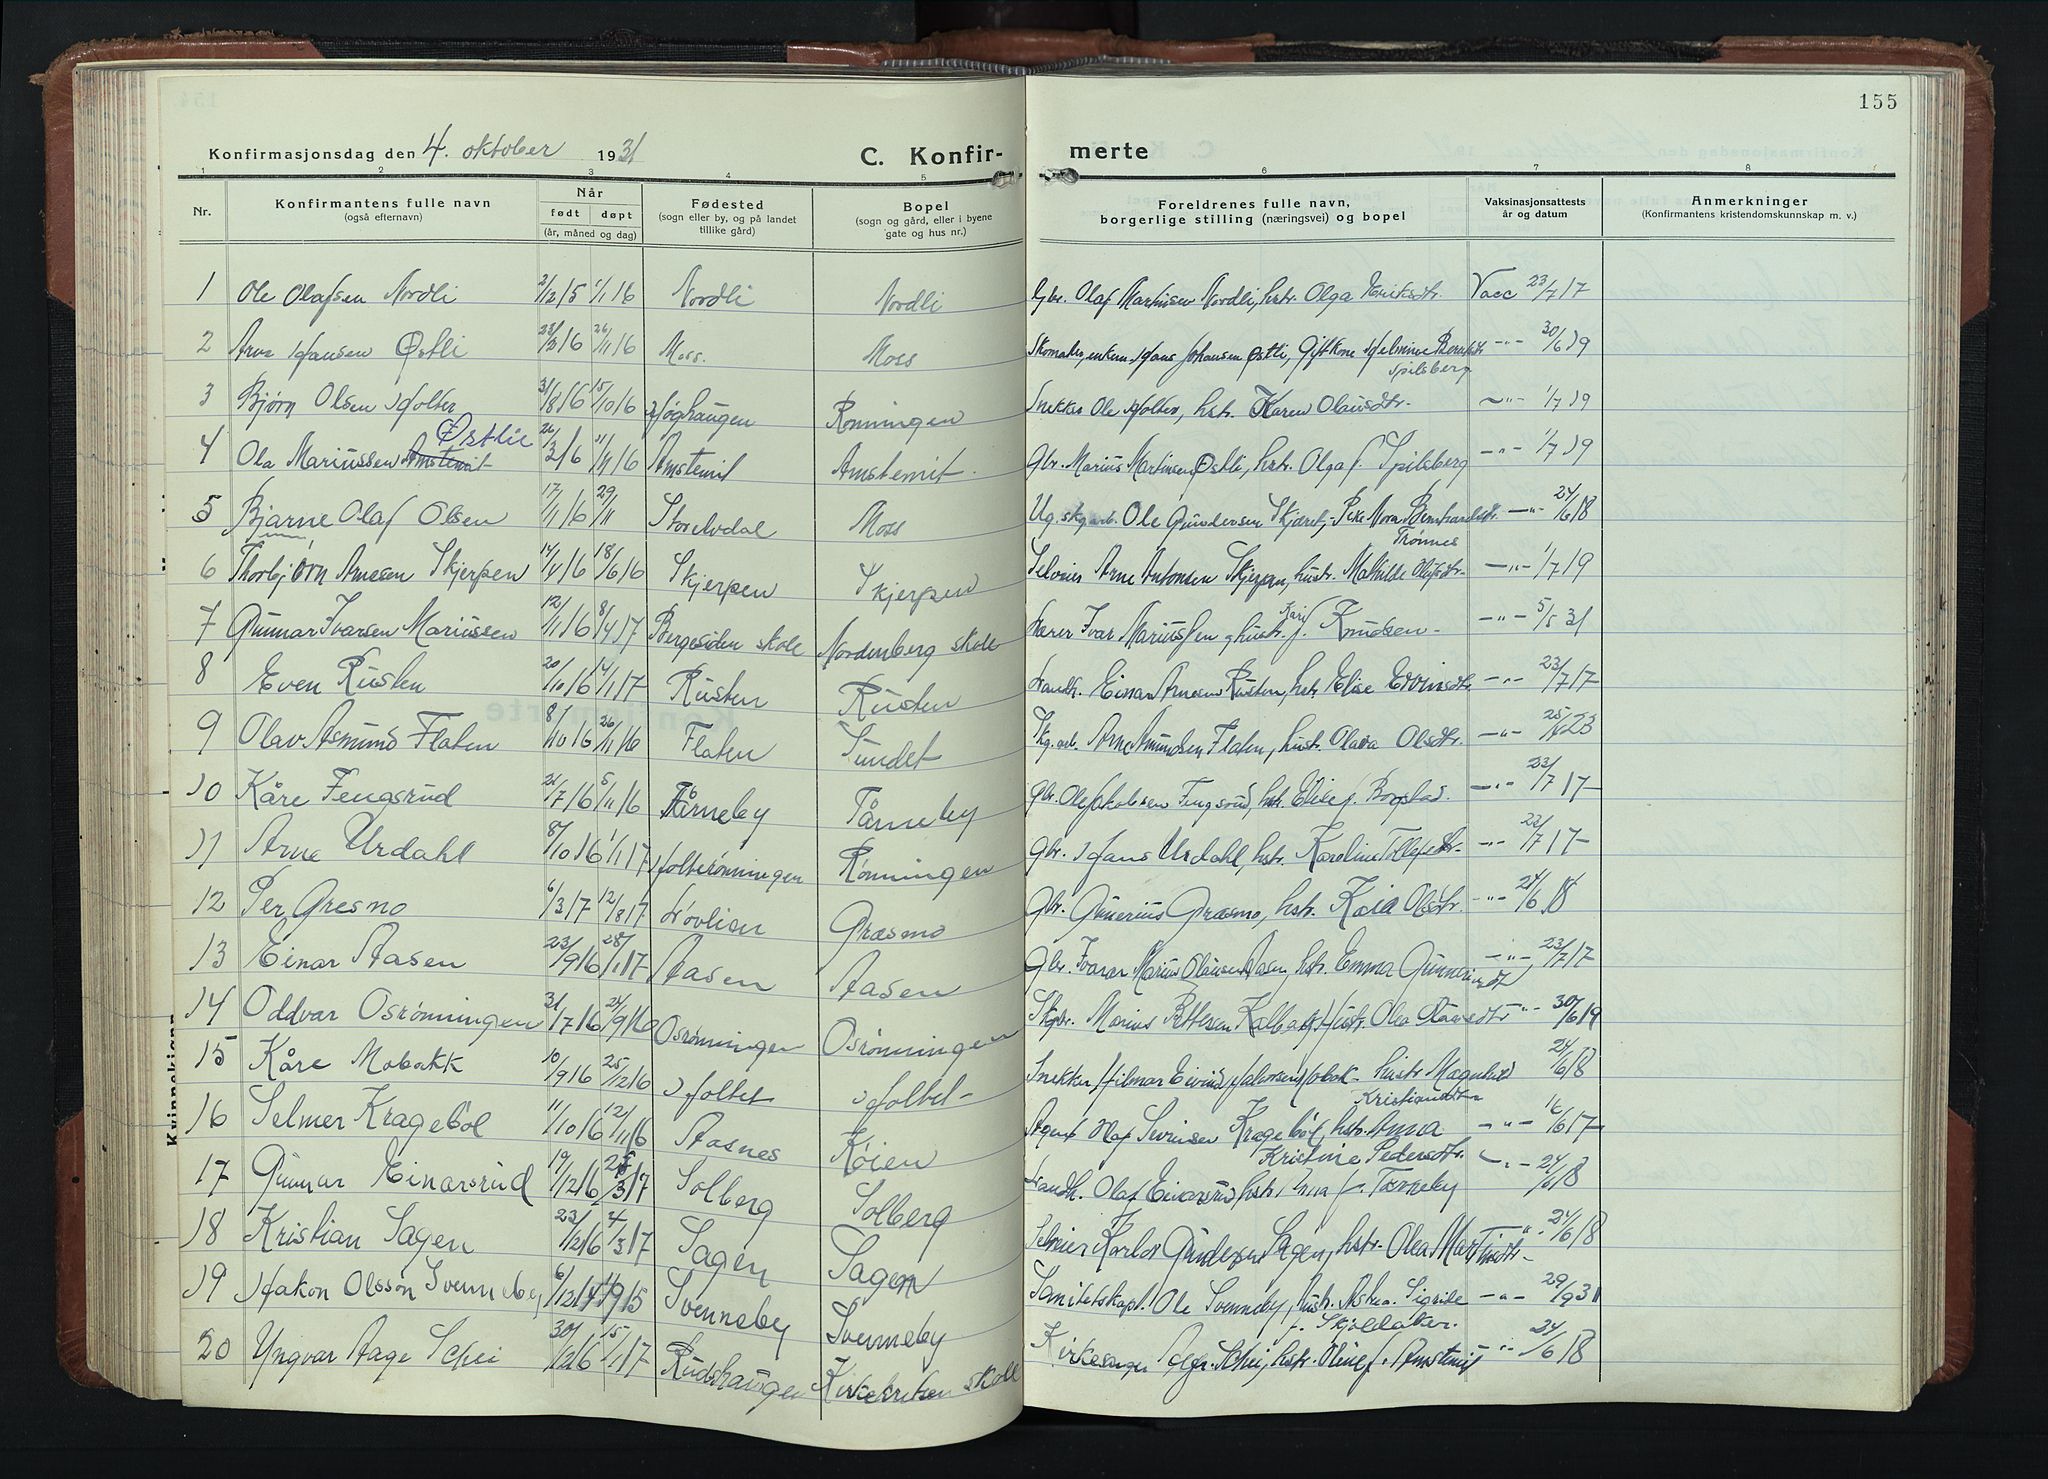 155
Konfirmasjonsdag den 4. oktober 1931 C. Konfir- merte
1 2 3 4 5 6 7 8
Nr. Konfirmantens fulle navn (også efternavn) Når født døpt (år, måned og dag) Fødested (sogn eller by, og på landet tillike gård) Bopel (sogn og gård, eller i byene gate og hus nr.) Foreldrenes fulle navn, borgerlige stilling (næringsvei) og bopel Vaksinasjonsattests år og datum Anmerkninger (Konfirmantens kristendomskunnskap m. v.)
1 Ole Olafsen Nordli 2/12 15 1/1 16 Nordli Nordli Gbr. Olaf Martinsen Nordli, hstr. Olga Eriksdtr. Vacc 23/7 17
2 Arve Hansen Østli 16 26/11 16 Moss. Moss Hans Johansen Østli, Gift Kone Helmine Spilsberg -"- 30/6 19
3 Bjørn Olsen Holter 31/8 16 15/10 16 Høghaugen Rønningen Snekker Ole Holter, hstr. Karen Olausdtr. -"- 1/7 19
4 Ola Mariussen Amstemit Østlie 26/3 16 11/11 16 Amstemit Amstemit Gbr. Marius Martinsen Østli, hstr. Olga f. Spilsberg -"- 1/7 19
5 Bjarne Olaf Olsen 17/11 16 29/11 Storelvdal Moss Ug. skg.arb. Ole Gundersen Skjæret, Pike Nora Bernhardsdtr. Trønnes -"- 24/6 18
6 Thorbjørn Arnesen Skjerpen 14/4 16 18/6 16 Skjerpen Skjerpen Selveier Arne Antonsen Skjerpen, hustr. Mathilde Olufsdtr. -"- 1/7 19
7 Gunnar Ivarsen Mariussen 12/11 16 8/4 17 Bergesiden skole Nordenberg skole Lærer Ivar Mariussen, hustr. Kari f. Knudsen -"- 5/5 31
8 Even Rusten 20/10 16 14/1 17 Rusten Rusten Landh. Einar Arnesen Rusten, hstr. Elise Evensdtr. -"- 23/7 17
9 Olav Asmund Flaten 8/10 16 26/11 16 Flaten Sundet Skg.arb. Arne Amundsen Flaten, hustr. Olava Olsdtr. -"- 25/ 23
10 Kåre Fengsrud 21/7 16 5/11 16 Tårneby Tårneby Gbr. Ole Jakobsen Fengsrud, hstr. Elise f. Bogstad. -"- 23/7 17
11 Arne Urdahl 8/10 16 1/1 17 Holterønningen Rønningen Gbr. Hans Urdahl, hstr. Karoline Tollefsdtr. -"- 23/7 17
12 Per Gresmo 6/3 17 12/8 17 Løvlien Græsmo Gbr. Gunerius Græsmo, hstr. Kaia Olsdtr. -"- 24/6 18
13 Einar Aasen 23/9 16 28/1 17 Aasen Aasen Gbr. Ivarar Marius Olausen Aasen, hstr. Emma Gunneriusdt -"- 23/7 17
14 Oddvar Osrønningen 31/7 16 24/9 16 Osrønningen Osrønningen Marius Pettersen Kalbak, Hustr. Olea Olausdtr -"- 30/6 19
15 Kåre Mobakk 10/9 16 25/12 16 Holtet Holtet Snekker Hilmar Eivind Halvorsen Mobak hustr Magnhild Kristiansdtr 24/6 18
16 Selmer Kragebøl 11/10 16 12/11 16 Aasnes Køien Agent Olaf Severinsen Kragebøl, hstr. Anna Kristine Pedersdtr. -"- 16/6 17
17 Gunnar Einarsrud 19/12 16 25/3 17 Solberg Solberg Landh. Olaf Einarsrud, hstr. f. Torneby -"- 24/6 18
18 Kristian Sagen 23/12 16 4/3 17 Sagen Sagen Selveier Karlot Gundersen Sagen, hstr. Olea Martinsdtr. -"- 24/6 18
19 Håkon Olsson Svenneby 6/12 14 1/9 15 Svenneby Svenneby Sanitetskapt. Ole Svenneby, Hustr. Astrea Sigride f. Skjoldåker. -"- 29/9 31
20 Yngvar Aage Schei 30/12 16 15/1 17 Rudshaugen Kirkekretsen skole Kirkesanger Aage Schei, hstr. Oline f. Amstemit -"- 24/6 18